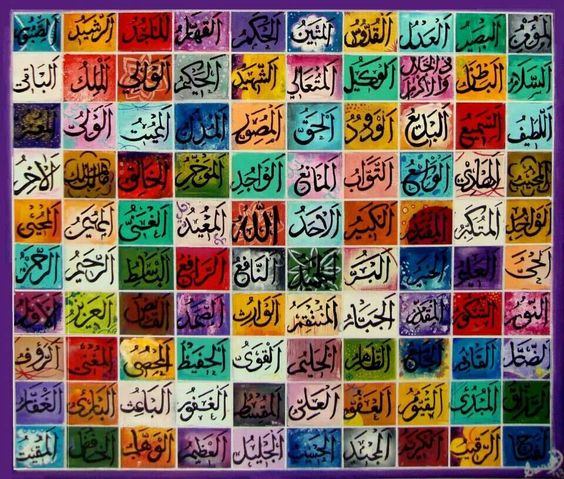 المؤمن البصير العدل القدوس المتين الحكم القهار الماجد الرشيد
السلام الباطن ذي الجلال والاكرام الوكيل المتعالي الشهيد الحكيم الوالي الملك الباقي
اللطيف السميع البديع الودود الحق المصور المذل المميت الولي
المجيب الهادي الواسع التواب المانع الواجد المؤخر الخالق مالك الملك الآخر
الواحد المتكبر المقتدر الكبير الاحد الله الغني المحيي
الحي العليم الخبير النافع الرافع الباسط الرحيم الرحمن
النور الشكور المقدم الجبار المنتقم الوارث الصمد القابض العزيز الاول
الضار القادر الجامع الظاهر الحليم القوي الحفيظ المحصي المغني الرؤوف
الرزاق المبدئ القيوم العفو العلي المقسط الغفور الباعث البارئ الغفار
الفتاح الرقيب الكريم الحسيب الجليل العظيم الوهاب الخافض المقيت